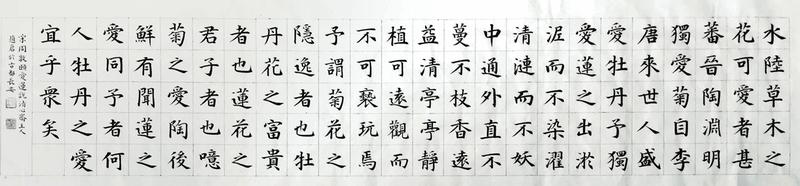 水陸草木之
花可愛者甚
蕃晉陶淵明
獨愛菊自李
唐來世人盛
愛牡丹予獨
愛蓮之出淤
泥而不染濯
清漣而不妖
中通外直不
蔓不枝香遠
益清亭亭靜
植可遠觀而
不可褻玩焉
予謂菊花之
隱逸者也牡
丹花之富貴
者也蓮花之
君子者也噫
菊之愛陶後
鮮有聞蓮之
愛同予者何
人牡丹之愛
宜乎眾矣
宋周敦頤愛蓮說清心齋主人
於古都長安